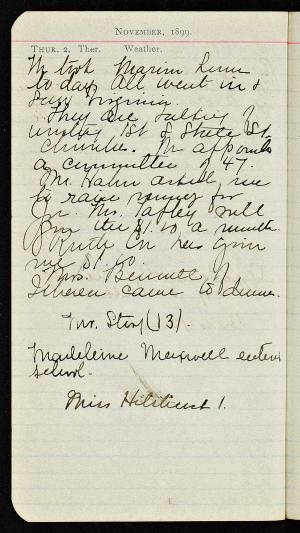 NOVEMBER, 1899.
THUR. 2, Ther. Weather.
M took Marion home
to day. All went in &
saw Virginia.
They are talking of
uniting 1st & State St.
churches. M appoints
a committee of 47.
M. Hahn asked me
to raise money for
Mrs. will
give the $1.10 a month
Ruth has given
me $1.
Mrs. Bennett of
came to dinner.
Mr. Story (13).
Madeleine Maxwell enters
school.
Miss 1.